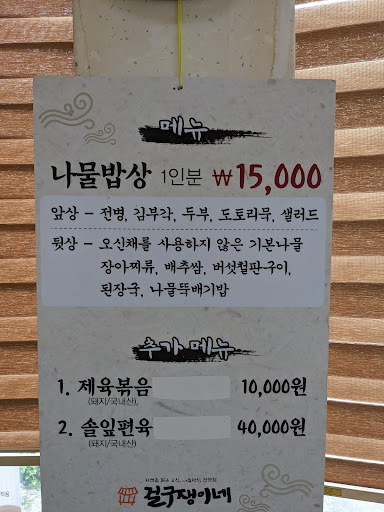 메뉴
나물밥상 1인분 ₩15,000
앞상 - 전병, 김부각, 두부, 도토리묵, 샐러드
뒷상 - 오신채를 사용하지 않은 기본나물
장아찌류, 배추쌈, 버섯철판구이,
된장국, 나물뚝배기밥
추가 메뉴
1. 제육볶음 10,000원
(돼지/국내산),
2. 솔잎편육 40,000원
(돼지/국내산)
걸구쟁이네